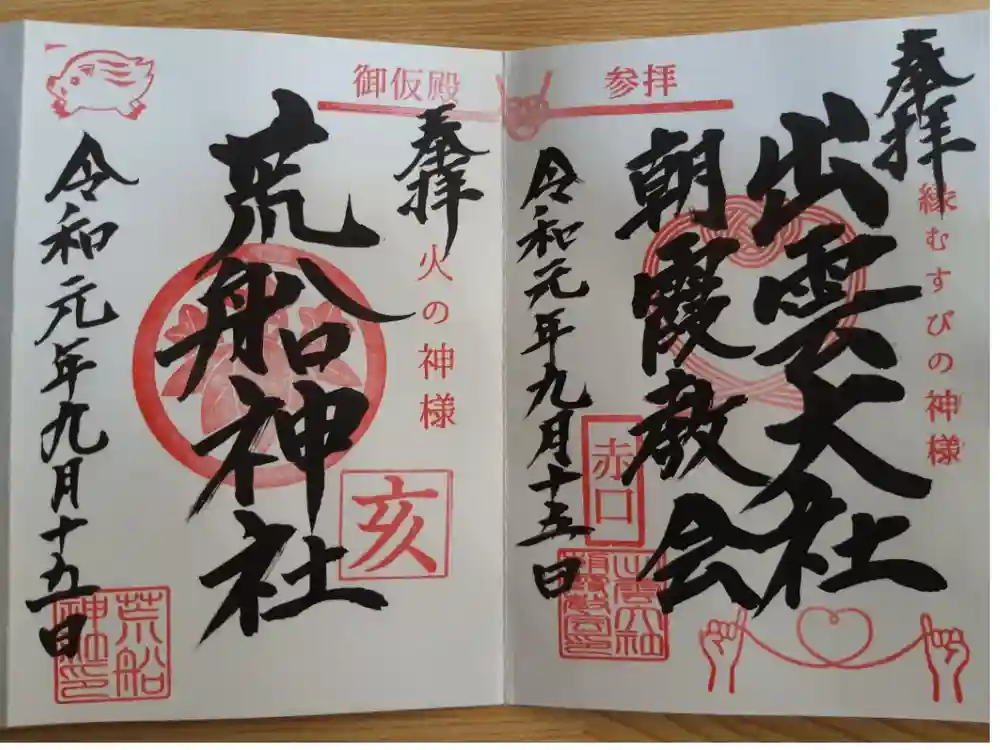 御仮殿 参拝
奉拝
縁むすびの神様
出雲大社
朝霞教会
赤口
令和元年九月十五日
奉拝
火の神様
荒船神社
亥
令和元年九月十五日
荒船
神社印